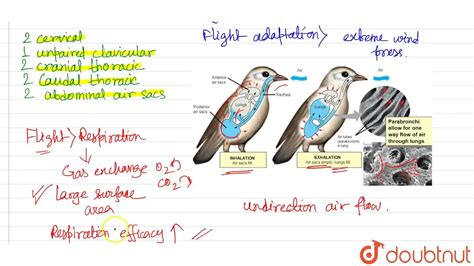 2 cervical
1 unpaired clavicular
2 cranial thoracic
2 Caudal thoracic
2 abdominal air sacs
Flight > Respiration
Gas exchange O2
CO2
large surface
area
Respiration efficacy ↑
Flight adaptation > extreme wind
press.
Anterior
air sacs
Posterior
air sacs
Lungs
Air
Trachea
INHALATION
Air sacs fill
Air
Lungs
Air tubes
(parabronchi)
in lung
EXHALATION
Air sacs empty; lungs fill
Parabronchi
allow for one
way flow of air
through lungs
undirection air flow.
doubtnut